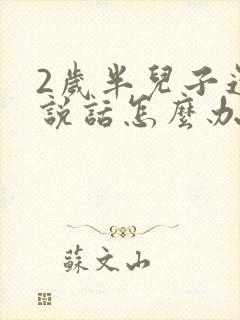 2歲半兒子
說話怎麼
蘇文山